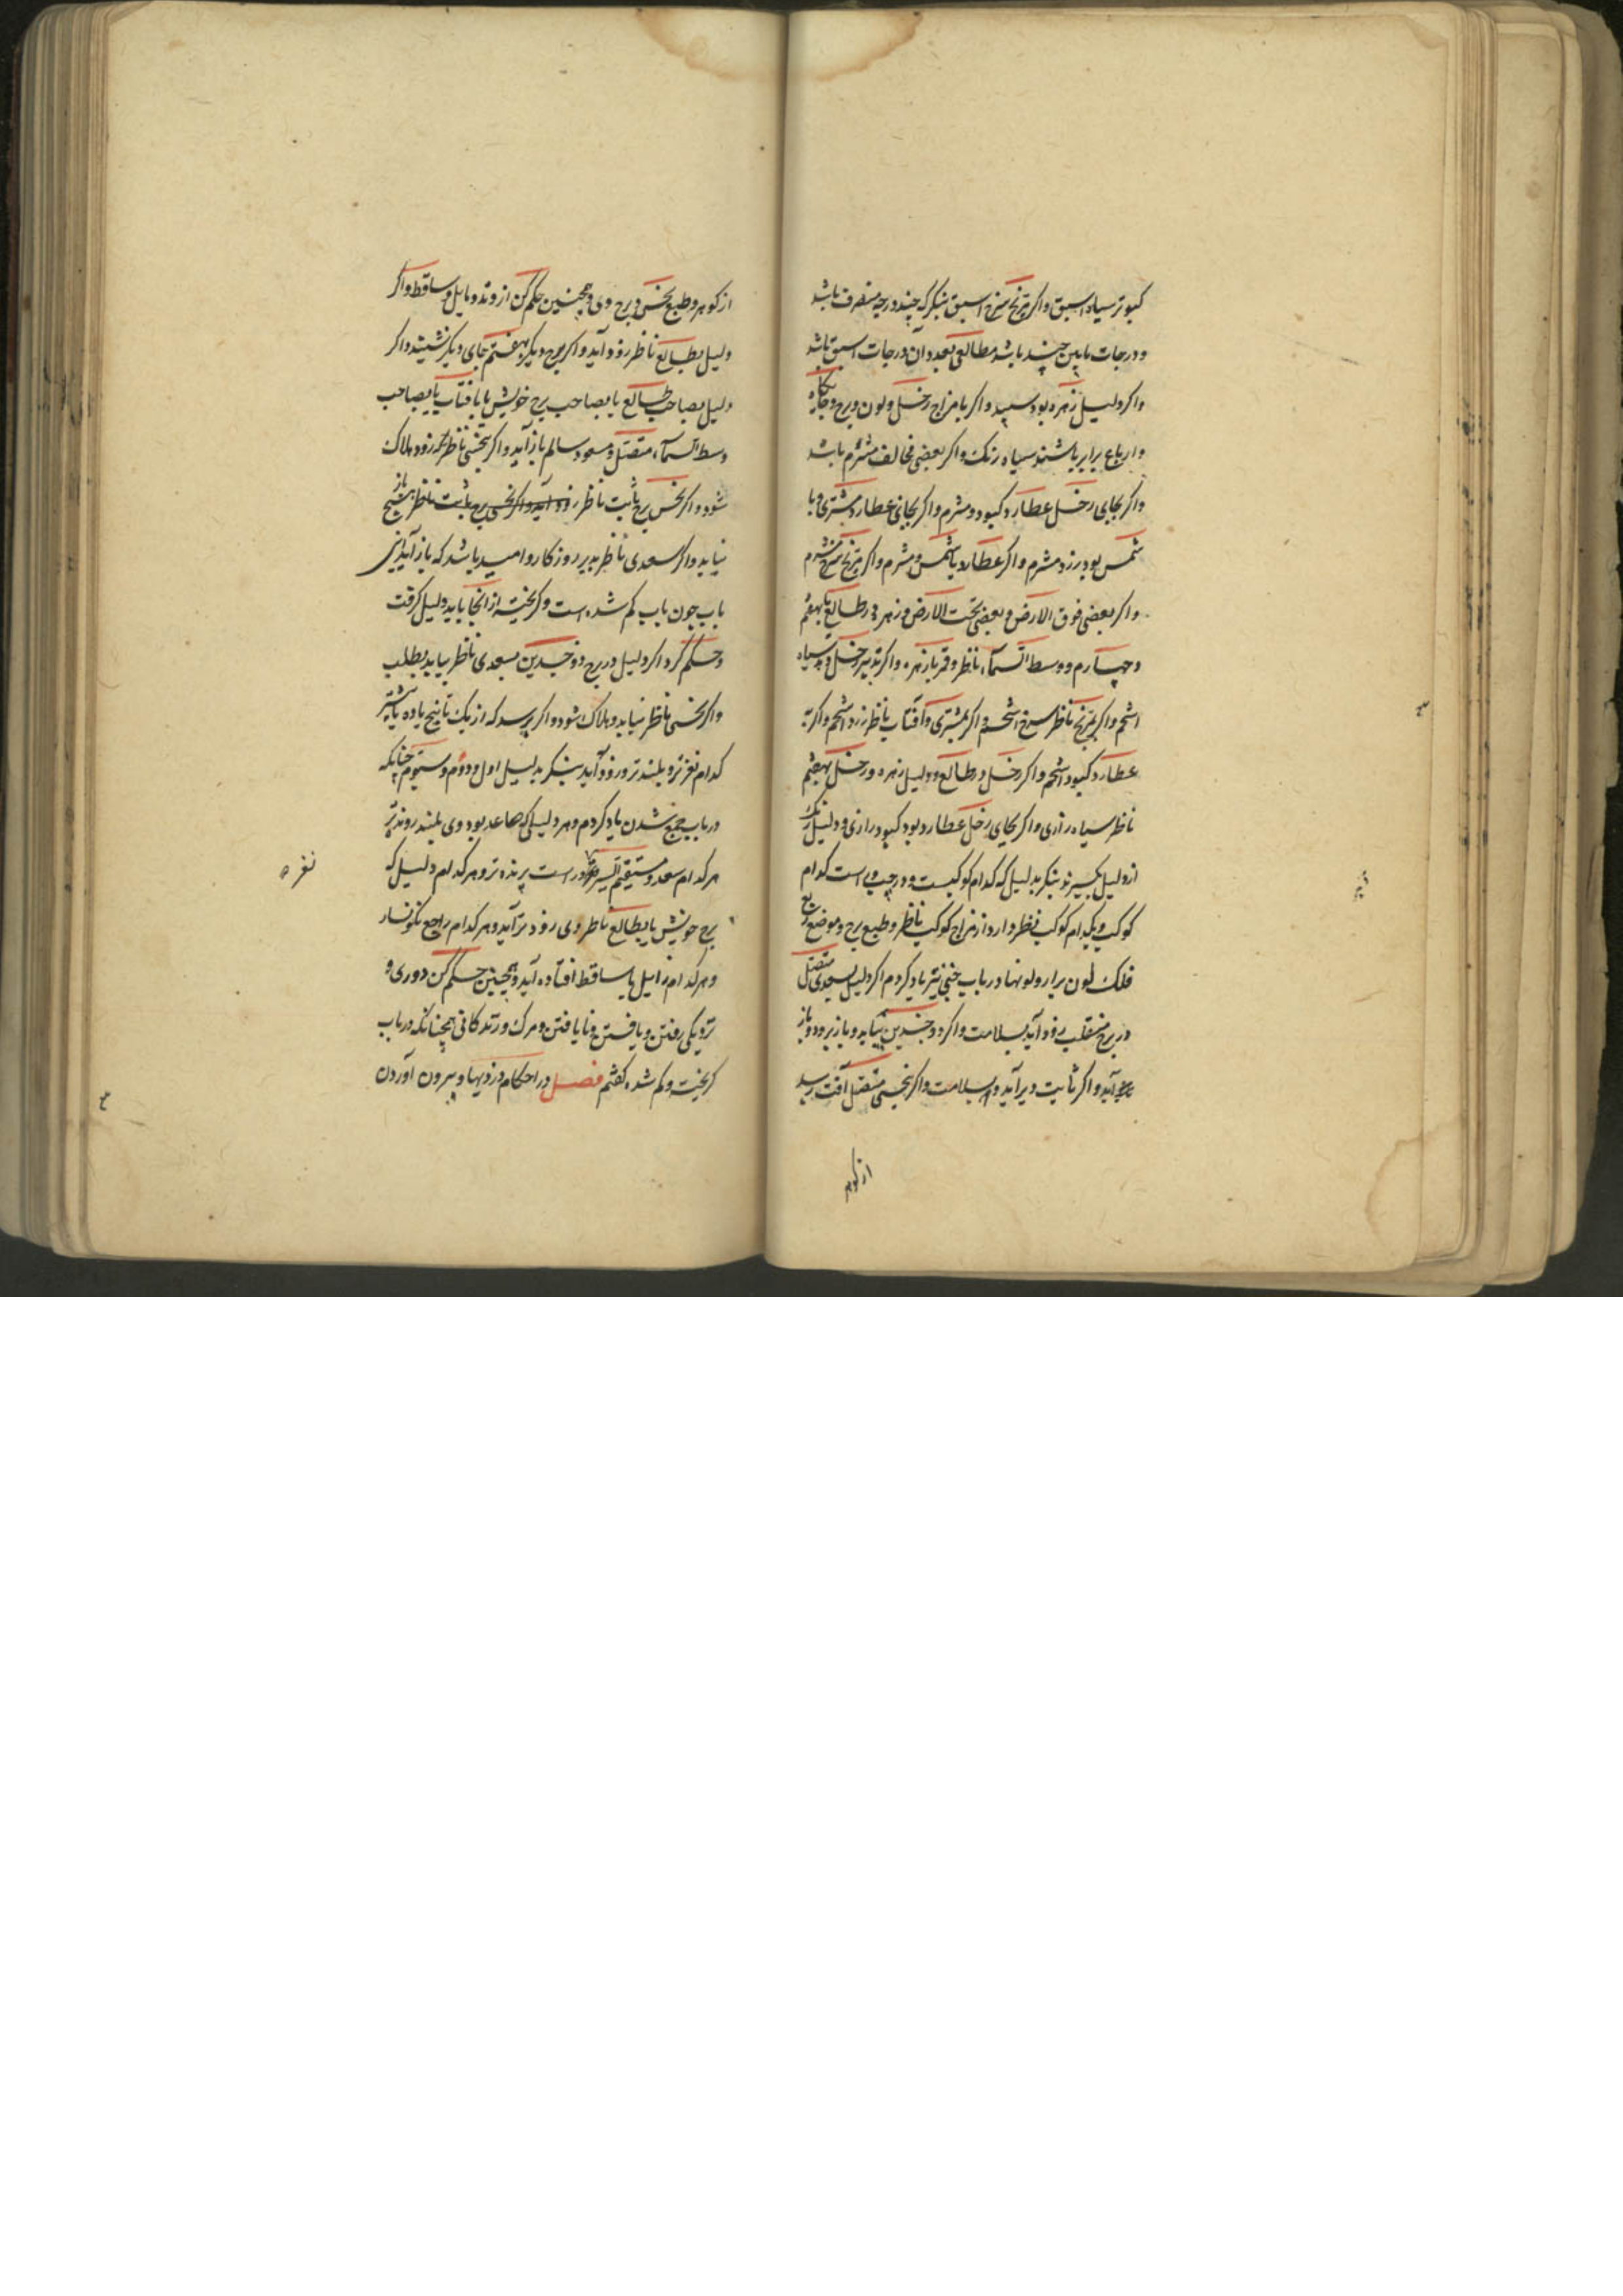 کبوتر سیاه اسبق و اکر مریخ سرخ اسبق بنکر که چند درجه منصرف باشد
و درجات مابین چند باشد مطالعی بعدد آن درجات اسبق باشد
و اکر دلیل زهره بود سپید و اکر با مزاج زحل و لون و برج و جایکاه
و ارباع برابر باشند سیاه رنک و اکر بعضی مخالف مشرم باشد
و اکر بجای زحل عطارد کبود و مشرم و اکر بجای عطارد مشتری و با
شمس بود زرد مشرم و اکر عطارد یا شمس و مشرم و اکر مریخ سرخ مشرم
و اکر بعضی فوق الارض و بعضی تحت الارض و زهره در طالع یا بهفتم
و چهارم و وسط السماء ناظر و قمر با زهره و اکر تدبیر زحل دهد سیاه
اشحم و اکر بمریخ ناظر سرخ اشحم و اکر بمشتری و آفتاب ناظر زرد اشحم و اکر به
عطارد کبود اشحم و اکر زحل در طالع و دلیل زهره و زحل بهفتم
ناظر سیاه رازی و اکر بجای زحل عطارد بود کبود رازی و دلیل رنک
از دلیل بکیرند بنکر بدلیل که کدام کوکبست و در چپ وی است کدام
کوکب و بکدام کوکب نظر دارد از مزاج کوکب ناظر و طبع برج و موضع ربع
فلک لون برار و لونها در باب خبی نیز یاد کردم اکر دلیل بسعدی متصل
در برج منقلب زود آید بسلامت و اکر ذو جسدین بیاید و باز برود و باز
آید و اکر ثابت دیر آید و بسلامت و اکر بنحسی متصل آفت رسد
از کوهر
از کوهر و طبع نحس و برج وی و همچنین حکم کن از وتد و مایل و ساقط و اکر
دلیل بطالع ناظر زود آید و اکر برج دیکر بهفتم جای دیکر نشیند و اکر
دلیل بصاحب طالع یا بصاحب برج خویش یا بآفتاب یا بصاحب
وسط السماء متصل و مسعود سالم باز آید و اکر بنحسی ناظر که زود هلاک
شود و اکر نحس برج ثابت ناظر زود آید و اکر نحس برج ثابت ناظر هیچ باز
نیاید و اکر سعدی ناظر بدیر روزکار و امید باشد که باز آید این
باب چون باب کم شده است و کریخته از انجا باید دلیل کرفت
و حکم کرد اکر دلیل در برج ذو جسدین بسعدی ناظر بیاید بطلب
و اکر نحسی ناظر نیاید و هلاک شود و اکر پرسد که از یک تا پنج یا ده یا بیشتر
کدام نغزتر و بلندتر و زود آید بنکر بدلیل اول و دوم و سیوم چنانکه
در باب جمع شدن یاد کردم و هر دلیلی که صاعد بود وی بلند رونده تر
هر کدام سعد و مستقیم السیر و در است پرنده تر و هر کدام دلیل که
برج خویش یا بطالع ناظر وی زودتر آید و هر کدام راجع نکونسار
و هر کدام زایل یا ساقط افتاده آید و همچنین حکم کن دوری و
نزدیکی رفتن و یافتن و نایافتن و مرک و زندکانی همچنانکه در باب
کریخته و کم شده کفتم فصل در احکام دزدیها و بیرون آوردن